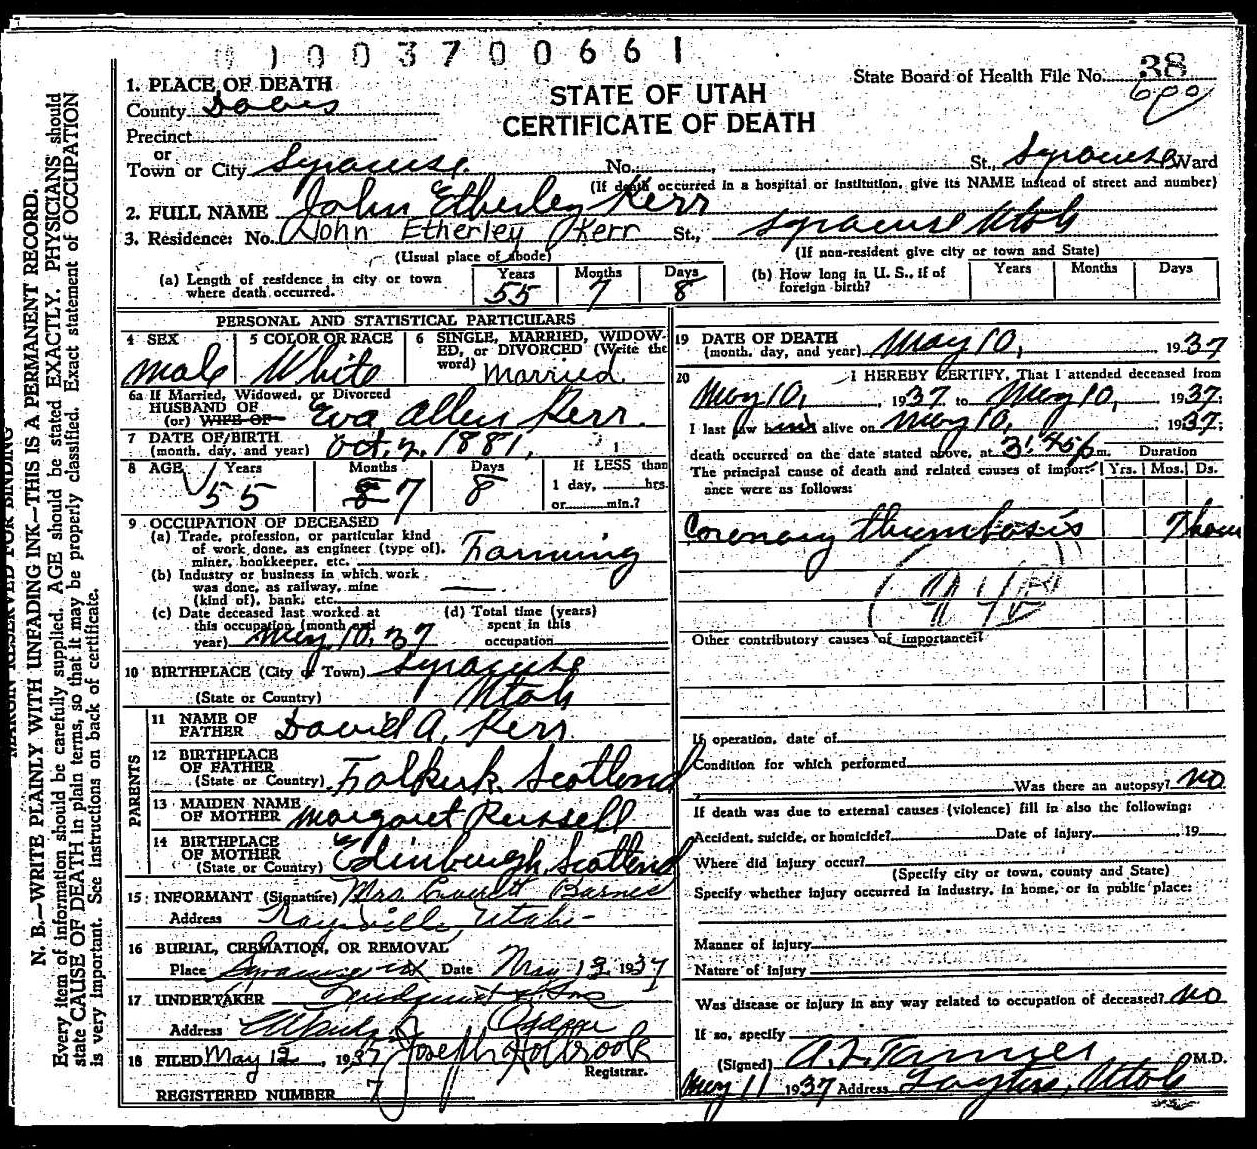 0 1 0 0 3 7 0 0 6 6 1
State Board of Health File No. 38
600
1. PLACE OF DEATH
County Davis
STATE OF UTAH
CERTIFICATE OF DEATH
Precinct
or
Town or City Syracuse. No. St., Syracuse Ward
(If death occurred in a hospital or institution, give its NAME instead of street and number)
2. FULL NAME John Etherley Kerr
3. Residence: No. John Etherley Kerr St., Syracuse Utah
(Usual place of abode) (If non-resident give city or town and State)
(a) Length of residence in city or town where death occurred. Years 55 Months 7 Days 8 (b) How long in U. S., if of foreign birth? Years Months Days
PERSONAL AND STATISTICAL PARTICULARS
4 SEX Male
5 COLOR OR RACE White
6 SINGLE, MARRIED, WIDOWED, or DIVORCED (Write the word) Married.
6a If Married, Widowed, or Divorced
HUSBAND OF
(or) WIFE OF Eva Allen Kerr.
7 DATE OF BIRTH
(month, day, and year) Oct. 2, 1881,
8 AGE Years 55 Months 8 7 Days 8 If LESS than 1 day, hrs. or min.?
9 OCCUPATION OF DECEASED
(a) Trade, profession, or particular kind
of work done, as engineer (type of),
miner, bookkeeper, etc. Farming
(b) Industry or business in which work
was done, as railway, mine
(kind of), bank, etc.
(c) Date deceased last worked at
this occupation (month and
year) May, 10, 37
(d) Total time (years)
spent in this
occupation
10 BIRTHPLACE (City or Town) Syracuse
(State or Country) Utah
PARENTS
11 NAME OF
FATHER David A. Kerr
12 BIRTHPLACE
OF FATHER
(State or Country) Falkirk Scotland
13 MAIDEN NAME
OF MOTHER Margaret Russell
14 BIRTHPLACE
OF MOTHER
(State or Country) Edinburgh, Scotland
15 INFORMANT (Signature) Mrs. Everett Barnes
Address Kaysville, Utah
16 BURIAL, CREMATION, OR REMOVAL
Place Syracuse Date May 13, 1937
17 UNDERTAKER Lindquist & Sons
Address Ogden
18 FILED May 12, 1937 Joseph Holbrook
Registrar.
REGISTERED NUMBER 7
19 DATE OF DEATH
(month, day, and year) May 10, 1937
20 I HEREBY CERTIFY, That I attended deceased from
May 10, 1937 to May 10, 1937;
I last saw him alive on May 10, 1937;
death occurred on the date stated above, at 3:45 p m. Duration
The principal cause of death and related causes of importance were as follows: Yrs. Mos. Ds.
Coronary thrombosis 7 hours
Other contributory causes of importance:
If operation, date of
Condition for which performed
Was there an autopsy? no
If death was due to external causes (violence) fill in also the following:
Accident, suicide, or homicide? Date of injury 19
Where did injury occur?
(Specify city or town, county and State)
Specify whether injury occurred in industry, in home, or in public place:
Manner of injury
Nature of injury
Was disease or injury in any way related to occupation of deceased? no
If so, specify
(Signed) A. Z. Tanner M.D.
May 11 1937 Address Layton, Utah
MARGIN RESERVED FOR BINDING
N. B.—WRITE PLAINLY WITH UNFADING INK—THIS IS A PERMANENT RECORD.
Every item of information should be carefully supplied. AGE should be stated EXACTLY. PHYSICIANS should
state CAUSE OF DEATH in plain terms, so that it may be properly classified. Exact statement of OCCUPATION
is very important. See instructions on back of certificate.